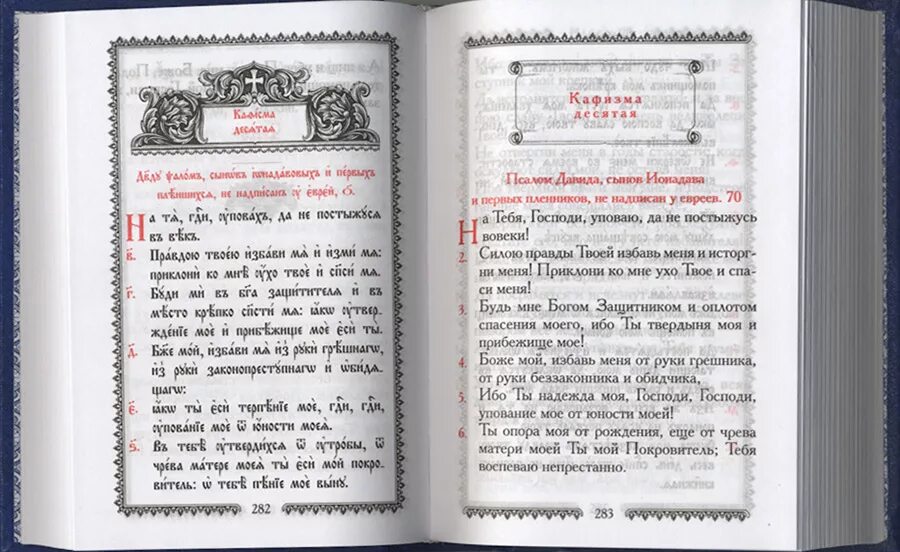 Каѳі́сма
десѧ́таѧ
Дв҃ду ѱало́мъ, сынѡ́въ і҆ѡнада́вовыхъ и҆ пе́рвыхъ
плѣ́ншихсѧ, не надпи́санъ ᲂу҆ є҆вре́й, о҃.
На тѧ̀, гдⷭ҇и, ᲂу҆пова́хъ, да не постыжу́сѧ
въ вѣ́къ.
в҃. Пра́вдою твое́ю и҆зба́ви мѧ̀ и҆ и҆зми́ мѧ:
приклонѝ ко мнѣ̀ ᲂу҆́хо твоѐ и҆ сп҃си́ мѧ.
г҃. Бу́ди мѝ въ бг҃а защи́тителѧ и҆ въ
мѣ́сто крѣ́пко сп҃сти́ мѧ: ꙗ҆́кѡ ᲂу҆твер-
жде́нїе моѐ и҆ прибѣ́жище моѐ є҆сѝ ты̀.
д҃. Бж҃е мо́й, и҆зба́ви мѧ̀ и҆з̾ рукѝ грѣ́шнагѡ,
и҆з̾ рукѝ законопресту́пнагѡ и҆ ѡ҆би́дѧ-
щагѡ:
є҃. ꙗ҆́кѡ ты̀ є҆сѝ терпѣ́нїе моѐ, гдⷭ҇и, гдⷭ҇и,
ᲂу҆пова́нїе моѐ ѿ ю҆́ности моеѧ̀.
ѕ҃. Въ тебѣ̀ ᲂу҆тверди́хсѧ ѿ ᲂу҆тро́бы, ѿ
чре́ва ма́тере моеѧ̀ ты̀ є҆сѝ мо́й покро-
ви́тель: ѡ҆ тебѣ̀ пѣ́нїе моѐ вы́ну.
282
Кафизма
десятая
Псалом Давида, сынов Ионадава
и первых пленников, не надписан у евреев. 70
На Тебя, Господи, уповаю, да не постыжусь
вовеки!
2. Силою правды Твоей избавь меня и исторг-
ни меня! Приклони ко мне ухо Твое и спа-
си меня!
3. Будь мне Богом Защитником и оплотом
спасения моего, ибо Ты твердыня моя и
прибежище мое!
4. Боже мой, избавь меня от руки грешника,
от руки беззаконника и обидчика,
5. Ибо Ты надежда моя, Господи, Господи,
упование мое от юности моей!
6. Ты опора моя от рождения, еще от чрева
матери моей Ты мой Покровитель; Тебя
воспеваю непрестанно.
283